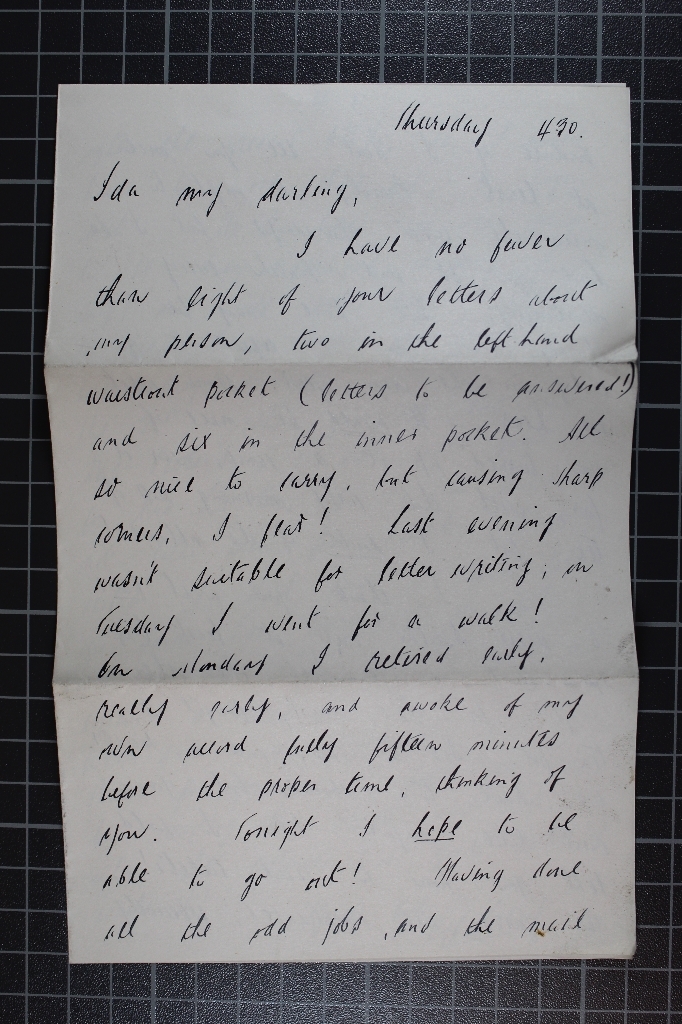 Thursday 430.
Ida my darling,
I have no fewer
than eight of your letters about
my person, two in the left hand
waistcoat pocket (letters to be answered!)
and six in the inner pocket. All
so nice to carry, but causing sharp
corners, I fear! Last evening
wasn't suitable for letter writing; on
Tuesday I went for a walk!
On Monday I retired early,
really early, and awoke of my
own accord fully fifteen minutes
before the proper time, thinking of
you. Tonight I hope to be
able to go out! Having done
all the odd jobs, and the mail